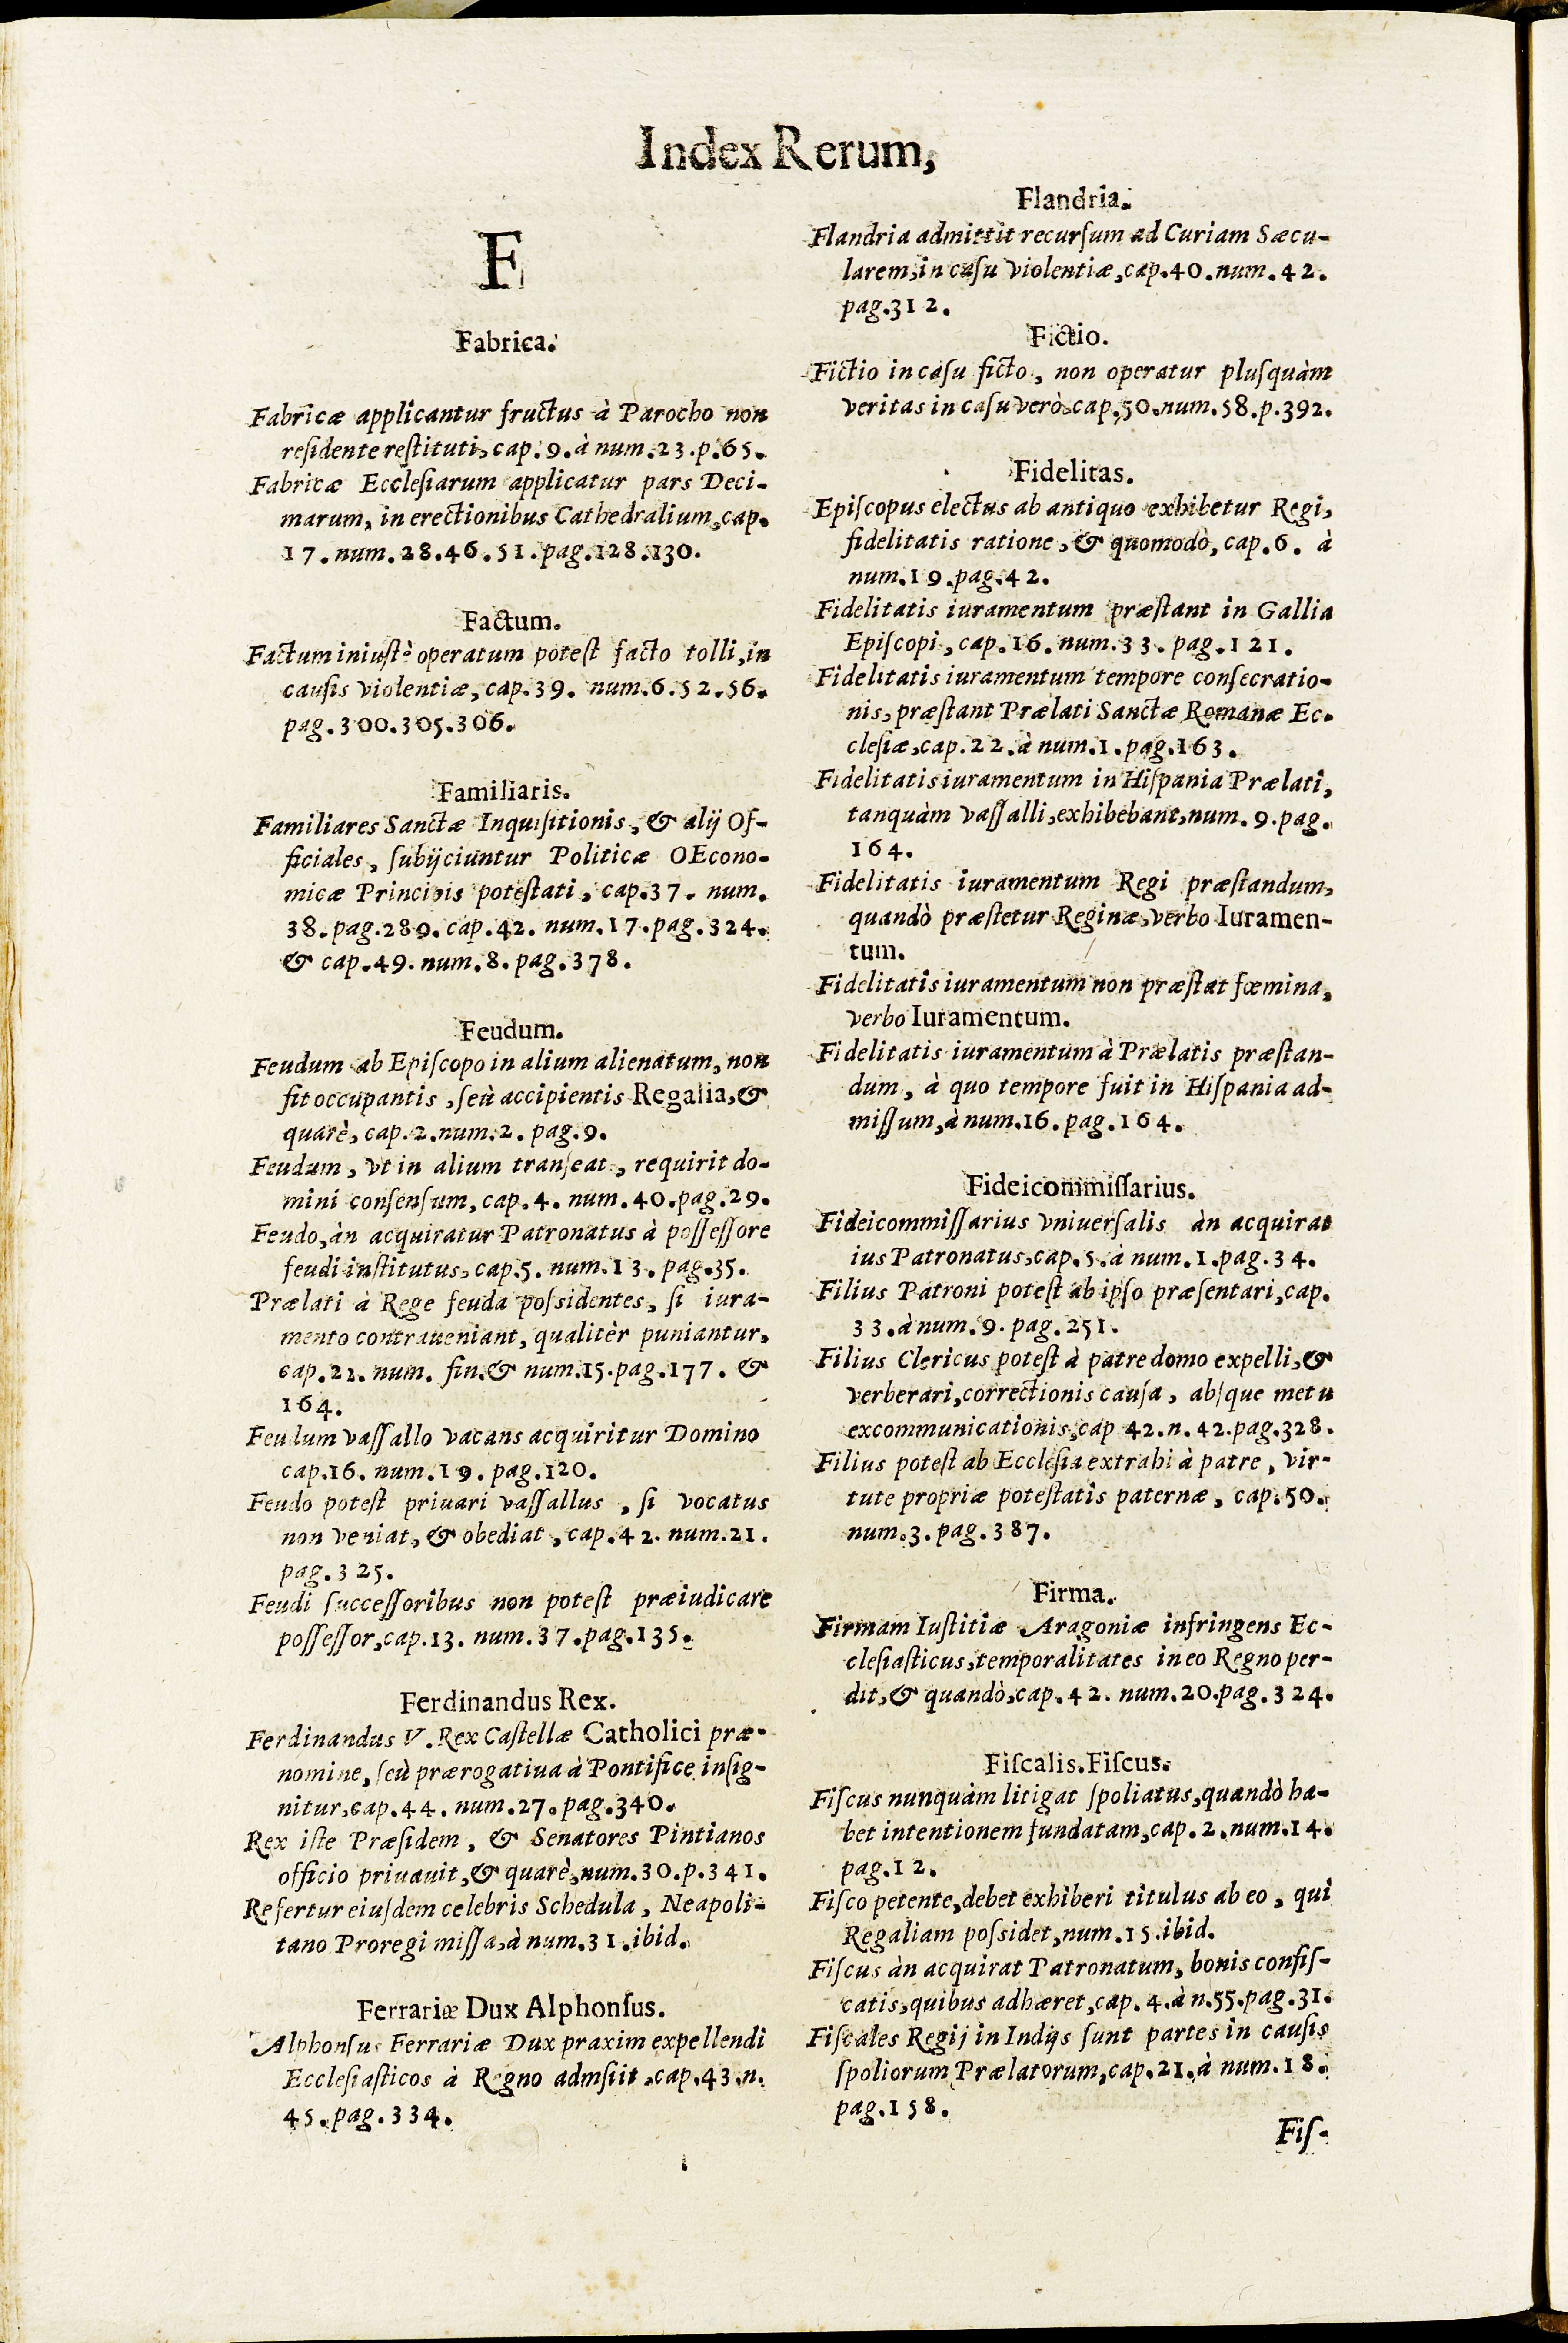 Index Rerum,
F
Fabrica.
Fabricæ applicantur fructus à Parocho non
reſidente reſtituti, cap. 9. à num. 23. p. 65.
Fabricæ Eccleſiarum applicatur pars Deci-
marum, in erectionibus Cathedralium, cap.
17. num. 28. 46. 51. pag. 128. 130.
Factum.
Factum iniuſtè operatum poteſt facto tolli, in
cauſis violentiæ, cap. 39. num. 6. 52. 56.
pag. 300. 305. 306.
Familiaris.
Familiares Sanctæ Inquiſitionis, & alij Of-
ficiales, ſubijciuntur Politicæ OEcono-
micæ Principis poteſtati, cap. 37. num.
38. pag. 289. cap. 42. num. 17. pag. 324.
& cap. 49. num. 8. pag. 378.
Feudum.
Feudum ab Epiſcopo in alium alienatum, non
fit occupantis, ſeù accipientis Regalia, &
quarè, cap. 2. num. 2. pag. 9.
Feudum, vt in alium tranſeat, requirit do-
mini conſenſum, cap. 4. num. 40. pag. 29.
Feudo, àn acquiratur Patronatus à poſſeſſore
feudi inſtitutus, cap. 5. num. 13. pag. 35.
Prælati à Rege feuda poſsidentes, ſi iura-
mento contraueniant, qualitèr puniantur,
cap. 22. num. fin. & num. 15. pag. 177. &
164.
Feudum vaſſallo vacans acquiritur Domino
cap. 16. num. 19. pag. 120.
Feudo poteſt priuari vaſſallus, ſi vocatus
non veniat, & obediat, cap. 42. num. 21.
pag. 325.
Feudi ſucceſſoribus non poteſt præiudicare
poſſeſſor, cap. 13. num. 37. pag. 135.
Ferdinandus Rex.
Ferdinandus V. Rex Caſtellæ Catholici præ-
nomine, ſeù prærogatiua à Pontifice inſig-
nitur, cap. 44. num. 27. pag. 340.
Rex iſte Præſidem, & Senatores Pintianos
officio priuauit, & quarè, num. 30. p. 341.
Refertur eiuſdem celebris Schedula, Neapoli-
tano Proregi miſſa, à num. 31. ibid.
Ferrariæ Dux Alphonſus.
Alphonſus Ferrariæ Dux praxim expellendi
Eccleſiaſticos à Regno admſiit, cap. 43. n.
45. pag. 334.
Flandria.
Flandria admittit recurſum ad Curiam Sæcu-
larem, in caſu violentiæ, cap. 40. num. 42.
pag. 312.
Fictio.
Fictio in caſu ficto, non operatur pluſquàm
veritas in caſu verò, cap. 50. num. 58. p. 392.
Fidelitas.
Epiſcopus electus ab antiquo exhibetur Regi,
fidelitatis ratione, & quomodò, cap. 6. à
num. 19. pag. 42.
Fidelitatis iuramentum præſtant in Gallia
Epiſcopi, cap. 16. num. 33. pag. 121.
Fidelitatis iuramentum tempore conſecratio-
nis, præſtant Prælati Sanctæ Romanæ Ec-
cleſiæ, cap. 22. à num. 1. pag. 163.
Fidelitatis iuramentum in Hiſpania Prælati,
tanquàm vaſſalli, exhibebant, num. 9. pag.
164.
Fidelitatis iuramentum Regi præſtandum,
quandò præſtetur Reginæ, verbo Iuramen-
tum.
Fidelitatis iuramentum non præſtat fœmina,
verbo Iuramentum.
Fidelitatis iuramentum à Prælatis præſtan-
dum, à quo tempore fuit in Hiſpania ad-
miſſum, à num. 16. pag. 164.
Fideicommiſſarius.
Fideicommiſſarius vniuerſalis àn acquirat
ius Patronatus, cap. 5. à num. 1. pag. 34.
Filius Patroni poteſt ab ipſo præſentari, cap.
33. à num. 9. pag. 251.
Filius Clericus poteſt à patre domo expelli, &
verberari, correctionis cauſa, abſque metu
excommunicationis, cap 42. n. 42. pag. 328.
Filius poteſt ab Eccleſia extrahi à patre, vir-
tute propriæ poteſtatis paternæ, cap. 50.
num. 3. pag. 387.
Firma.
Firmam Iuſtitiæ Aragoniæ infringens Ec-
cleſiaſticus, temporalitates in eo Regno per-
dit, & quandò, cap. 42. num. 20. pag. 324.
Fiſcalis. Fiſcus.
Fiſcus nunquàm litigat ſpoliatus, quandò ha-
bet intentionem fundatam, cap. 2. num. 14.
pag. 12.
Fiſco petente, debet exhiberi titulus ab eo, qui
Regaliam poſsidet, num. 15. ibid.
Fiſcus àn acquirat Patronatum, bonis confiſ-
catis, quibus adhæret, cap. 4. à n. 55. pag. 31.
Fiſcales Regij in Indijs ſunt partes in cauſis
ſpoliorum Prælatorum, cap. 21. à num. 18.
pag. 158.
Fiſ-